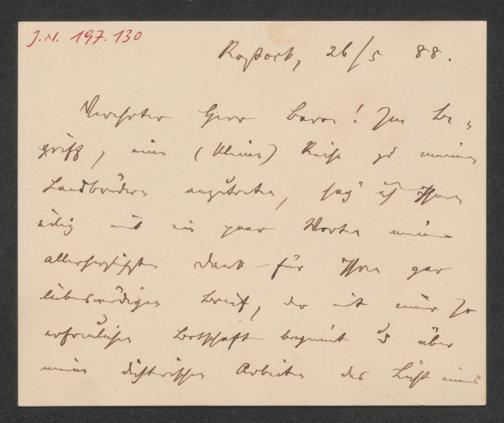 J.N. 197.130
Rostock, 26/5 88.
Verehrter Herr Baron! Im Be-
griff, eine (kleine) Reise zu meinen
Landbrüdern anzutreten, sag' ich Ihnen
eilig mit ein paar Worten meinen
allerherzlichsten Dank für Ihren gar
liebenswürdigen Brief, der mit einer so
erfreulichen Botschaft beginnt & über
meine dichterischen Arbeiten das Licht eines